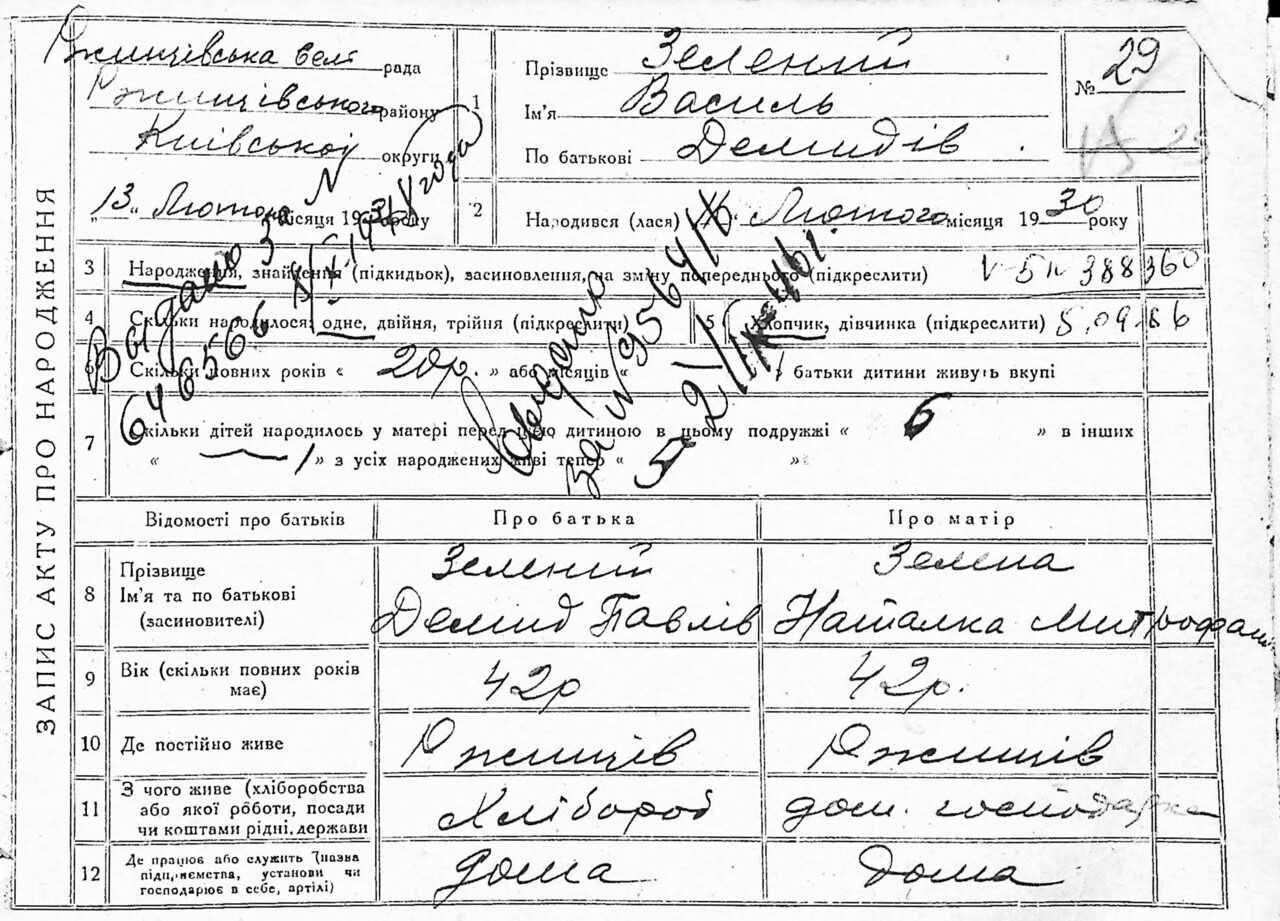 ЗАПИС АКТУ ПРО НАРОДЖЕННЯ
Ржищівська селі рада
Ржищівського району
Київської округи
„13“ Лютого місяця 19 року
1
Прізвище Зелений
Ім'я Василь
По батькові Демидів
№ 29
2 Народився (лася) Лютого місяця 1930 року
3 Народження, знайдення (підкидьок), засиновлення, на зміну попереднього (підкреслити)
V-БК 388360
4 Скільки народилося: одне, двійня, трійня (підкреслити)
5 Хлопчик, дівчинка (підкреслити)
5.09.86
6 Скільки повних років « 20р. » або місяців « » батьки дитини живуть вкупі
7 Скільки дітей народилось у матері перед цією дитиною в цьому подружжі « 6 » в інших
« — » з усіх народжених живі тепер « »
Выдано за N
646566
года
за N 956418
Відомості про батьків
Про батька
Про матір
8 Прізвище
Ім'я та по батькові
(засиновителі)
Зелений
Демид Павлів
Зелена
Наталка Митрофан
9 Вік (скільки повних років
має)
42р
42р.
10 Де постійно живе
Ржищів
Ржищів
11 З чого живе (хліборобства
або якої роботи, посади
чи коштами рідні, держави
Хлібороб
дом. господарка
12 Де працює або служить (назва
підприємства, установи чи
господарює в себе, артілі)
дома
дома